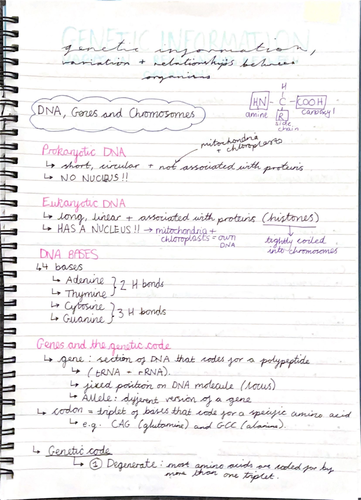 GENETIC INFORMATION
genetic information,
variation + relationships between
organisms
DNA, Genes and Chromosomes
H
HN - C - KOOH
amine
R
side chain
carboxyl
Prokaryotic DNA
mitochondria + chloroplasts
↳ short, circular + not associated with proteins
↳ NO NUCLEUS!!
Eukaryotic DNA
↳ long, linear + associated with proteins (histones)
↳ HAS A NUCLEUS!! → mitochondria + chloroplasts = own DNA
tightly coiled into chromosomes
DNA BASES
4 bases
↳ Adenine
↳ Thymine } 2 H bonds
↳ Cytosine
↳ Guanine } 3 H bonds
Genes and the genetic code
↳ gene: section of DNA that codes for a polypeptide
↳ (tRNA + rRNA).
↳ fixed position on DNA molecule (locus)
↳ Allele: different version of a gene
↳ codon = triplet of bases that code for a specific amino acid
↳ e.g. CAG (glutamine) and GCC (alanine).
↳ Genetic code
↳ ① Degenerate: most amino acids are coded for by
more than one triplet.